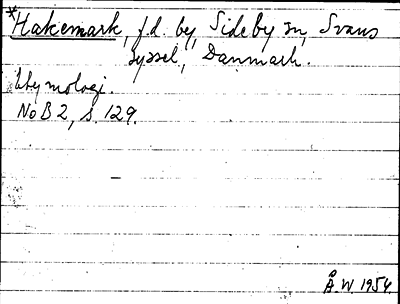 *Hakemark, f.d. by, Sideby sn, Svans
syssel, Danmark.
Etymologi.
NoB 2, s. 129.
Å W 1954